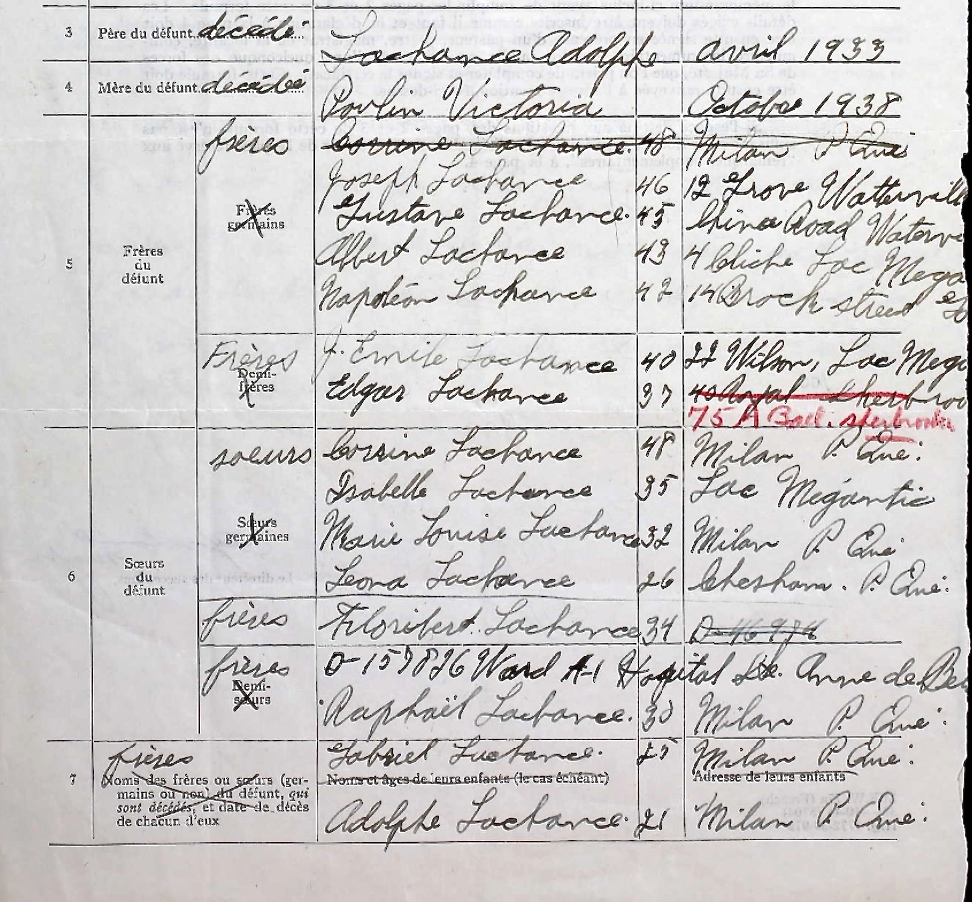 3 Père du défunt. décédé Lachance Adolphe avril 1933
4 Mère du défunt. décédé Poulin Victoria Octobre 1938
frères Corrine Lachance. 48 Milan P. Qué
Joseph Lachance 46 12 Grove Watterville
Frères germains Gustave Lachance. 45 China Road Waterv
5 Frères du défunt Albert Lachance 43 4 Cliche Lac Mega
Napoléon Lachance 42 14 Brock street
Frères J. Emile Lachance 40 22 Wilson, Lac Mega
Demi-frères Edgar Lachance 37 40 Royal Sherbroo
75 A Bael. sherbrooke
soeurs Corrine Lachance 48 Milan P. Qué.
Isabelle Lachance 35 Lac Mégantic
Sœurs germaines Marie Louise Lachance 32 Milan P. Qué
6 Sœurs du défunt Leona Lachance 26 Chesham. P. Qué.
frères Floribert Lachance 34 D-46974
frères D-157826 Ward A-1 Hospital Ste. Anne de Be
Demi-sœurs Raphaël Lachance. 30 Milan P. Qué.
frères Gabriel Lachance. 25 Milan P. Qué.
7 Noms des frères ou sœurs (ger- Noms et âges de leurs enfants (le cas échéant) Adresse de leurs enfants
mains ou non) du défunt, qui
sont décédés, et date de décès
de chacun d'eux Adolphe Lachance. 21 Milan P. Qué.